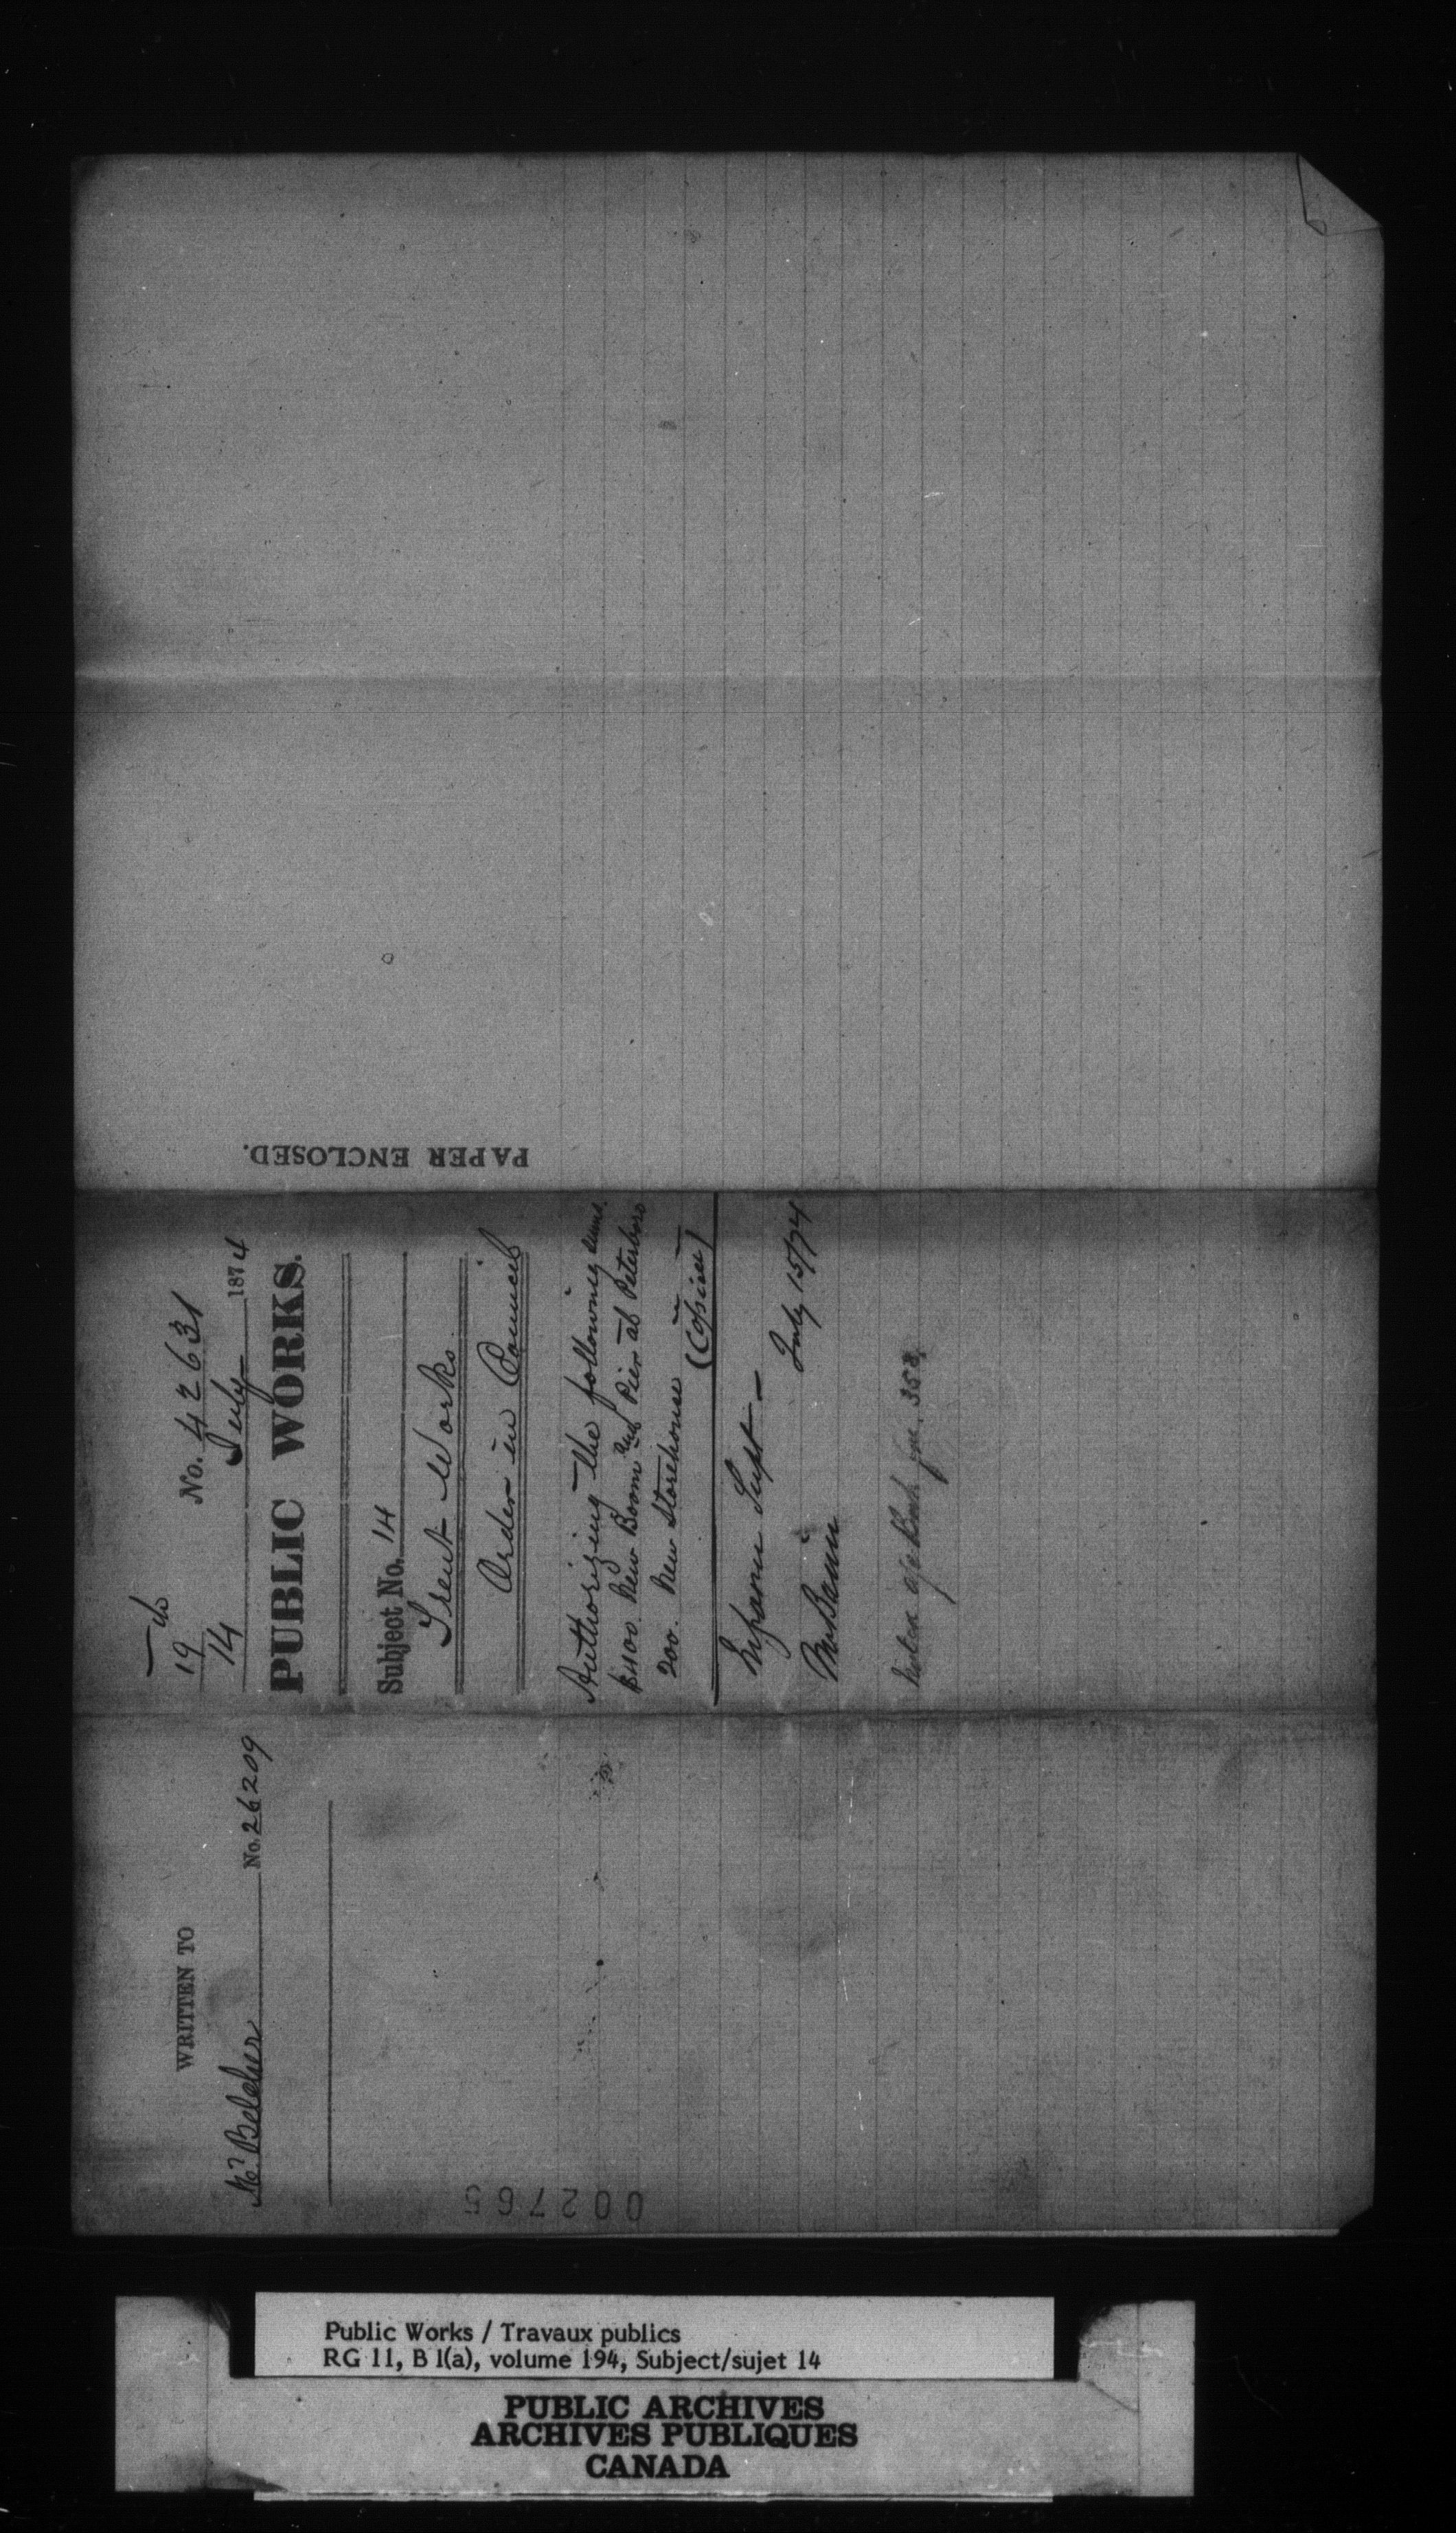 WRITTEN TO
Mr. Belcher No. 26209
002765
19
14
No. 42631
July 1874
PUBLIC WORKS.
Subject No. 14
Trent Works.
Order in Council
Authorizing the following sums.
$400. New Boom and Pier at Peterboro
200. New Storehouse
(Copies)
Inform Supt
July 15/74
Mr Bain
PAPER ENCLOSED.
Public Works / Travaux publics
RG 11, B 1(a), volume 194, Subject/sujet 14
PUBLIC ARCHIVES
ARCHIVES PUBLIQUES
CANADA